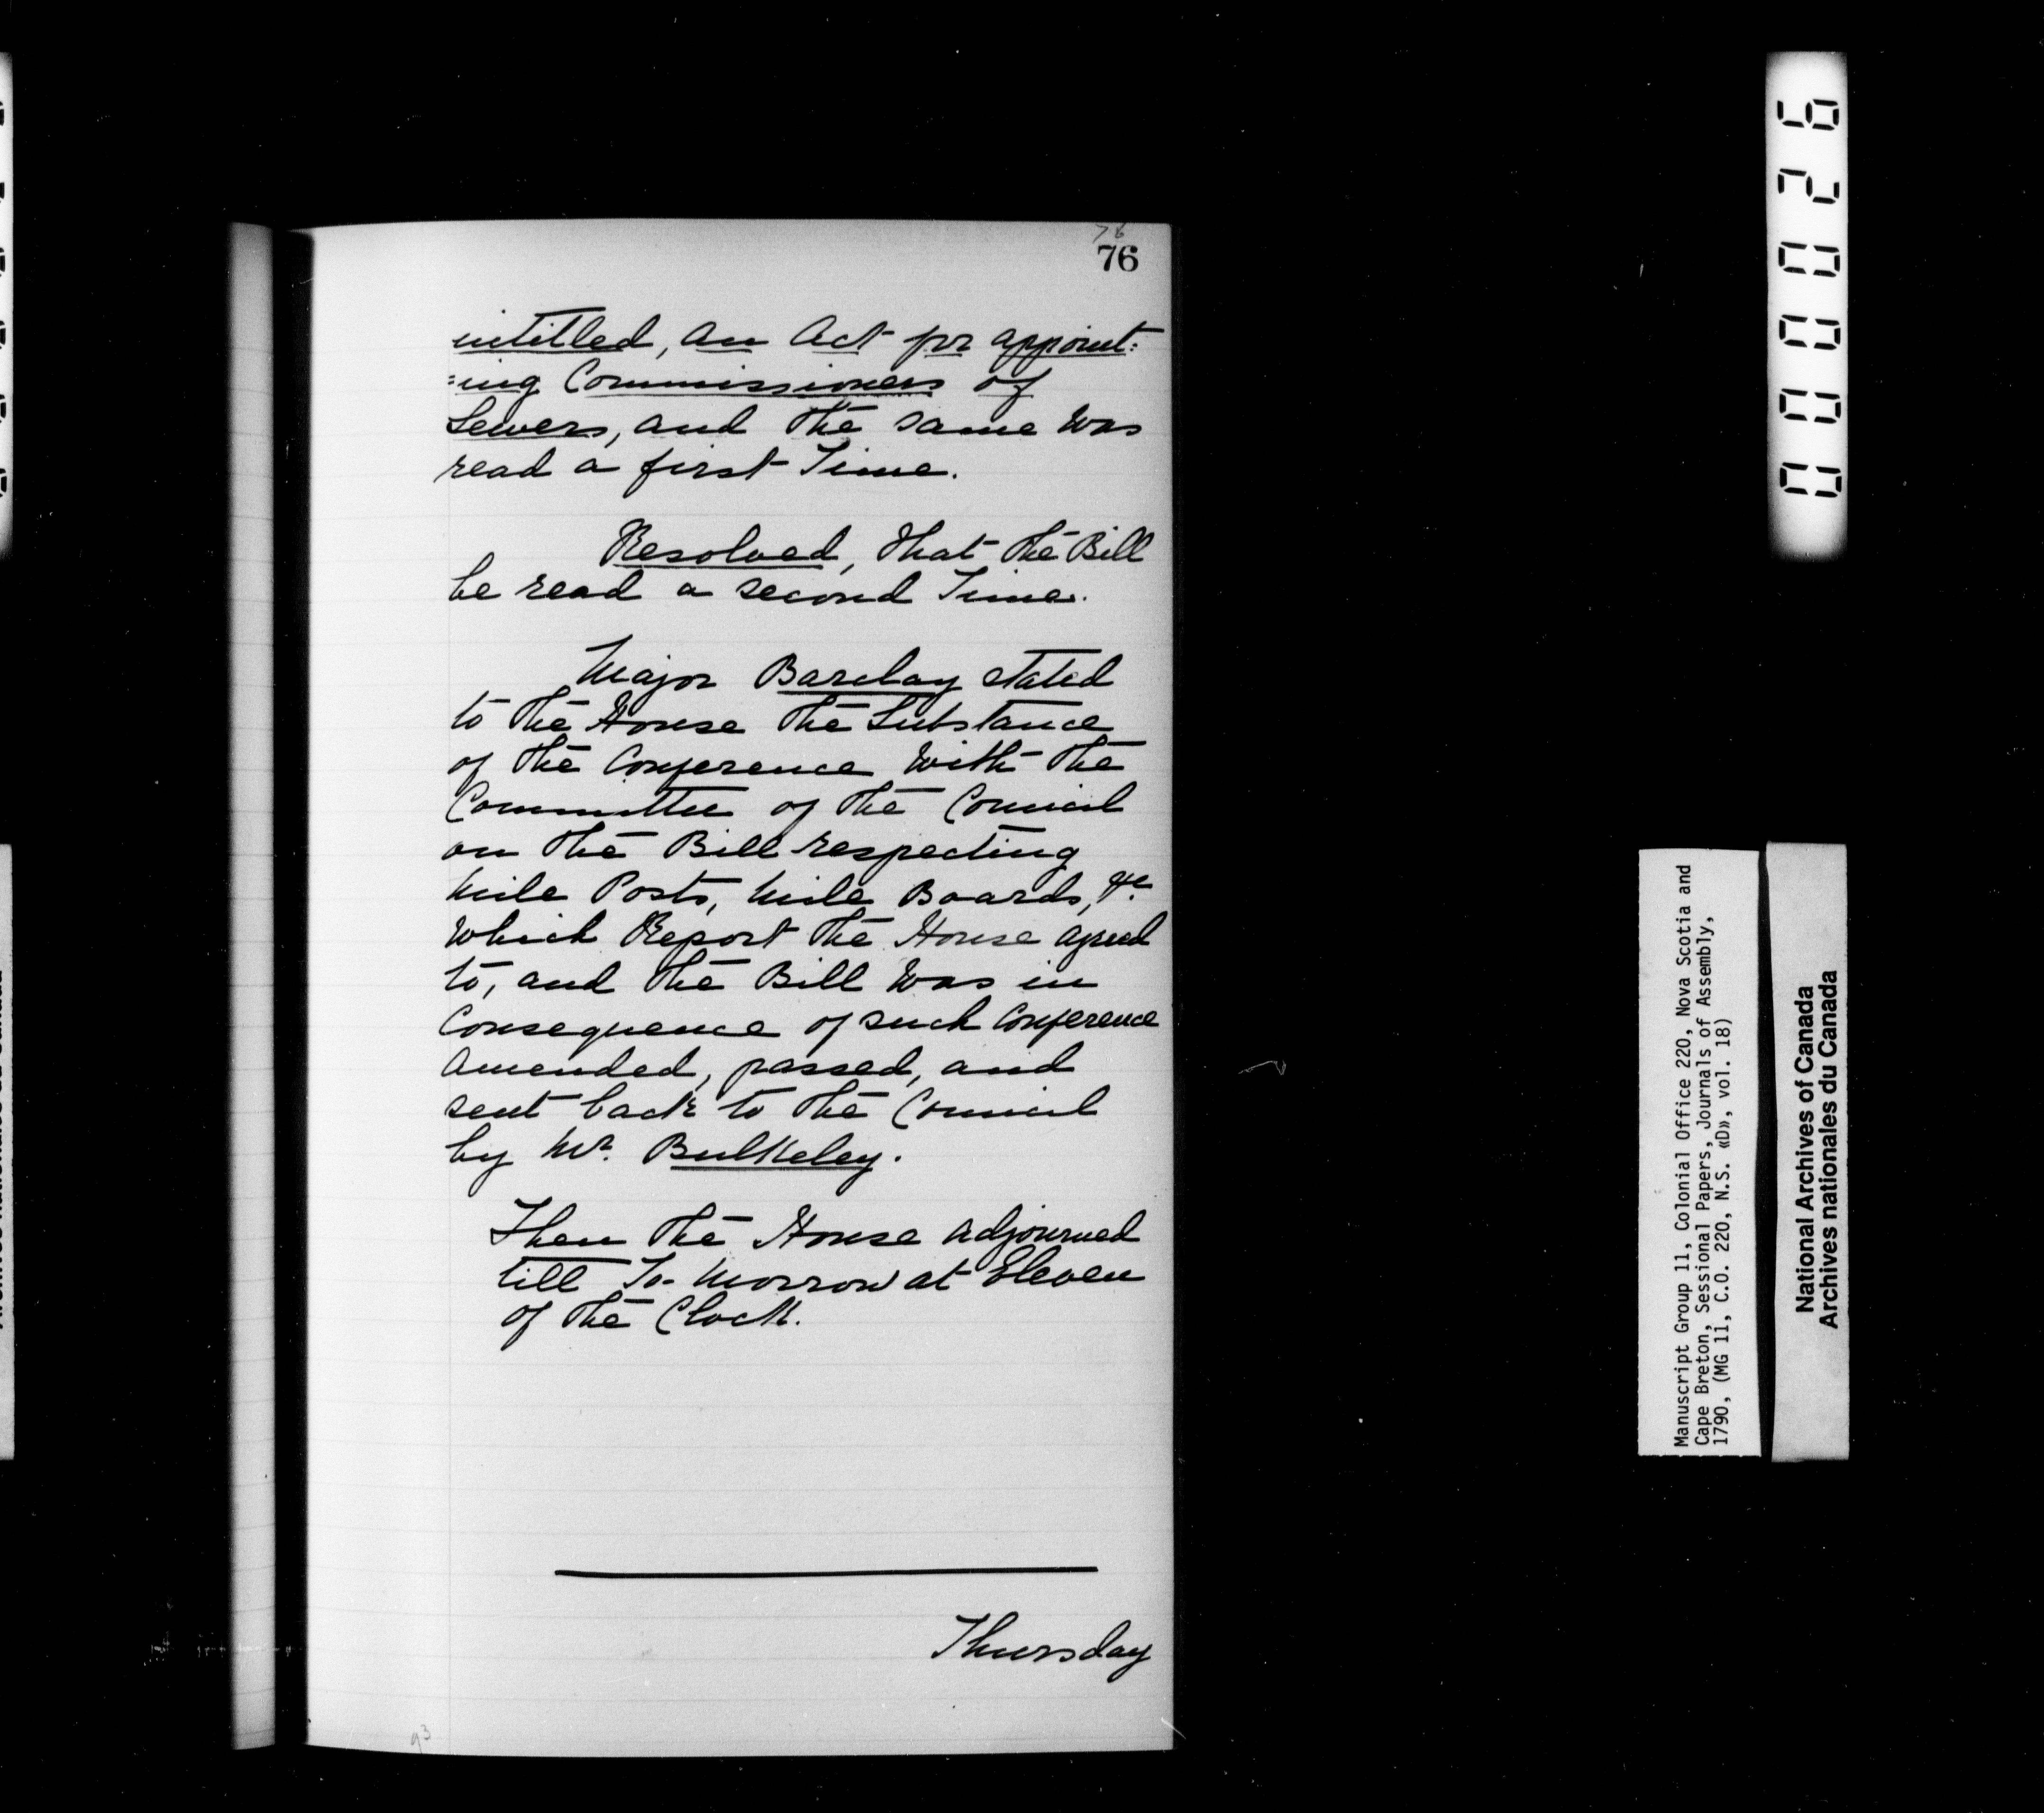 76
76
intitled, An Act for appoint:
=ing Commissioners of
Sewers, and the same was
read a first Time.
Resolved, that the Bill
be read a second Time.
Major Barclay stated
to the House the Substance
of the Conference with the
Committee of the Council
on the Bill respecting
Mile Posts, Mile Boards, &c.
which Report the House agreed
to, and the Bill was in
Consequence of such Conference
amended, passed, and
sent back to the Council
by Mr. Bulkeley.
Then the House adjourned
till To-morrow at Eleven
of the Clock.
Thursday
93
000026
Manuscript Group 11, Colonial Office 220, Nova Scotia and
Cape Breton, Sessional Papers, Journals of Assembly,
1790, (MG 11, C.O. 220, N.S. «D», vol. 18)
National Archives of Canada
Archives nationales du Canada